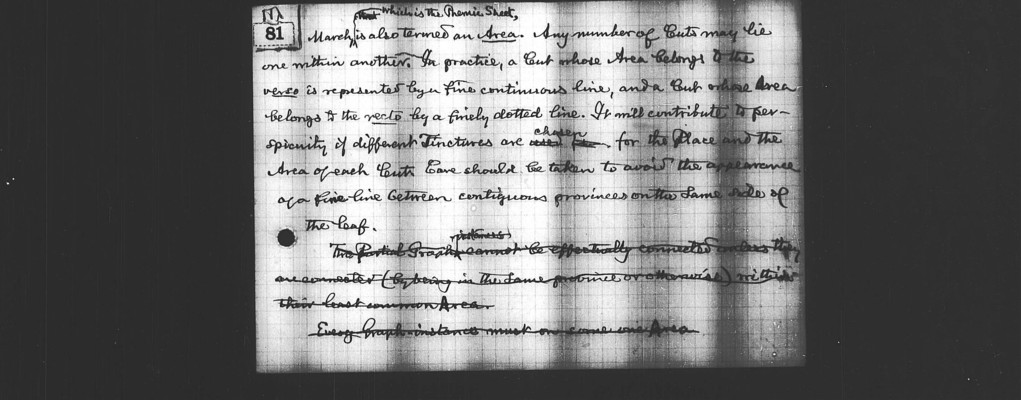 81
which is the Phemic Sheet,
March, is also termed an Area. Any number of Cuts may lie
one within another. In practice, a Cut whose Area belongs to the
verso is represented by a fine continuous line, and a Cut whose Area
belongs to the recto by a finely dotted line. It will contribute to per-
chosen
spicuity if different Tinctures are used for the Place and the
Area of each Cut. Care should be taken to avoid the appearance
of a fine line between contiguous provinces on the same side of
the leaf.
instances
Two Partial Graph cannot be effectually connected unless they
are connected (by being in the same province or otherwise) within
their least common Area.
Every Graph-instance must on some one Area